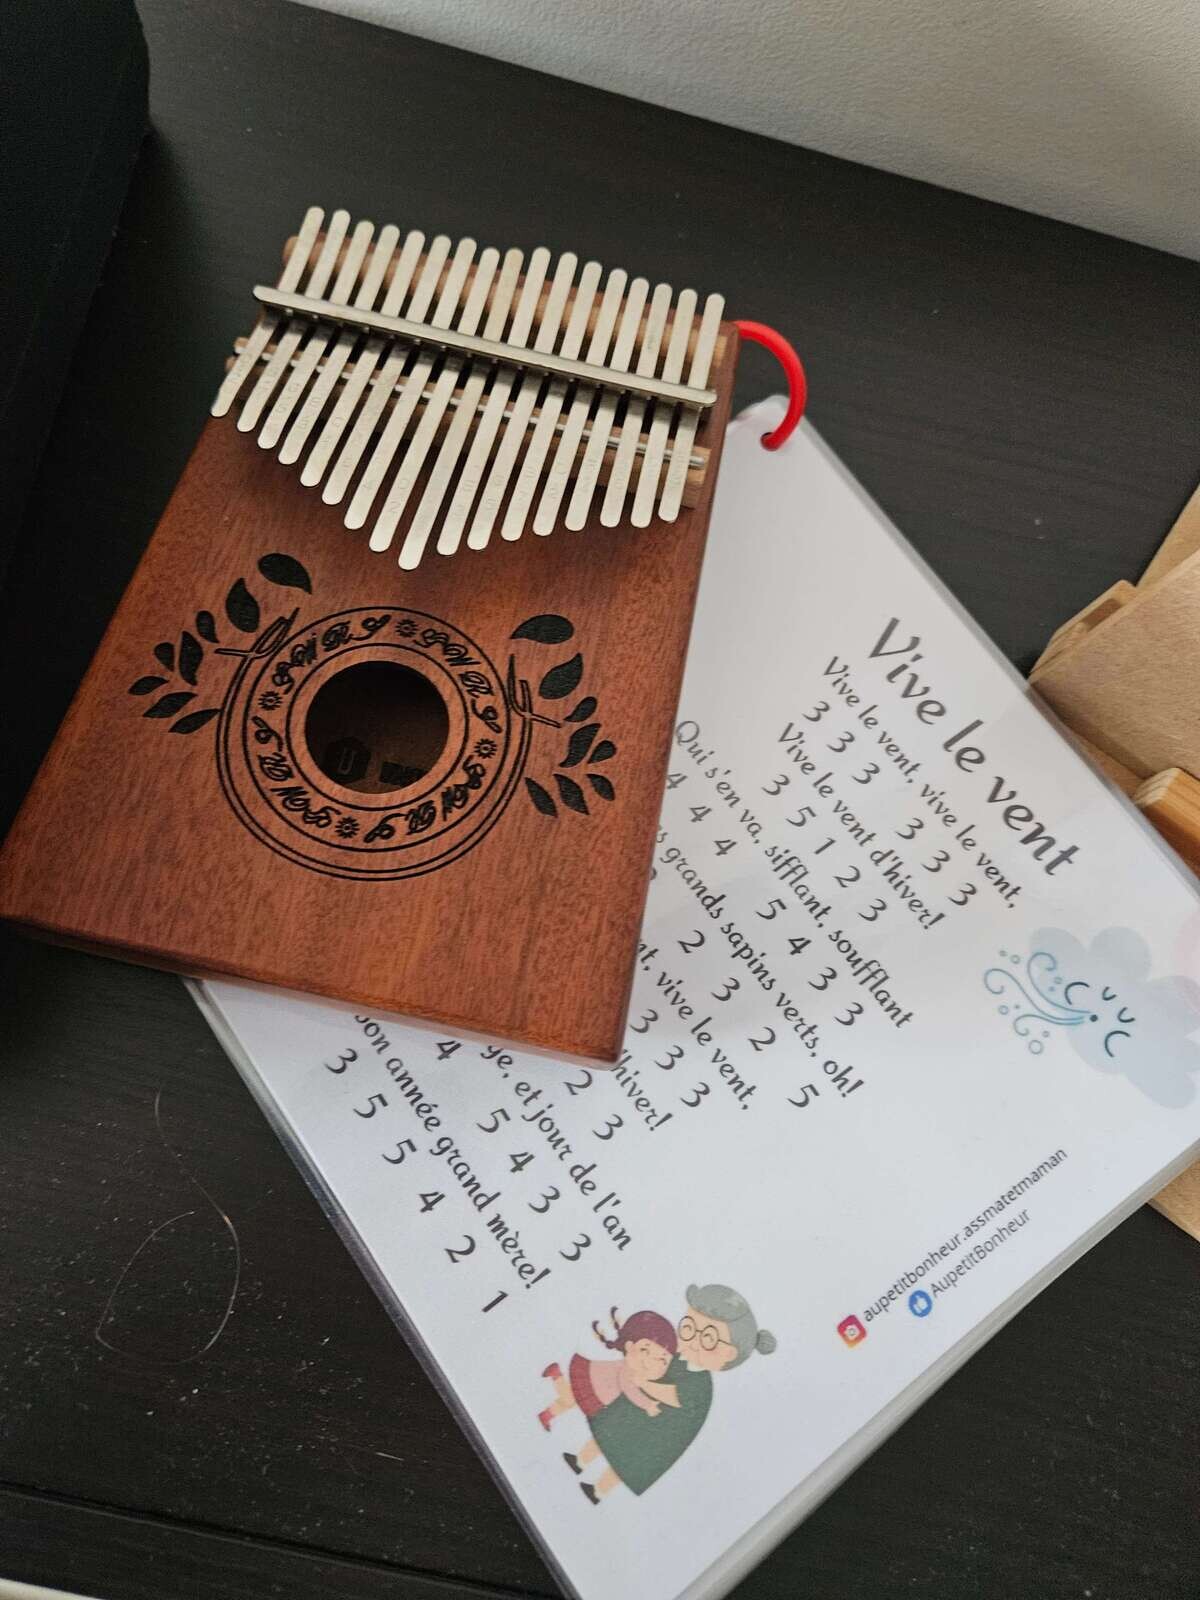 Vive le vent
Vive le vent, vive le vent,
3 3 3 3 3 3
Vive le vent d'hiver!
3 5 1 2 3
Qui s'en va, sifflant, soufflant
4 4 4 5 4 3 3
grands sapins verts, oh!
2 3 2 5
vive le vent,
3 3 3
2 3
et jour de l'an
4 5 4 3 3
bon année grand mère!
3 5 5 4 2 1
aupetitbonheur.assmatetmaman
AupetitBonheur